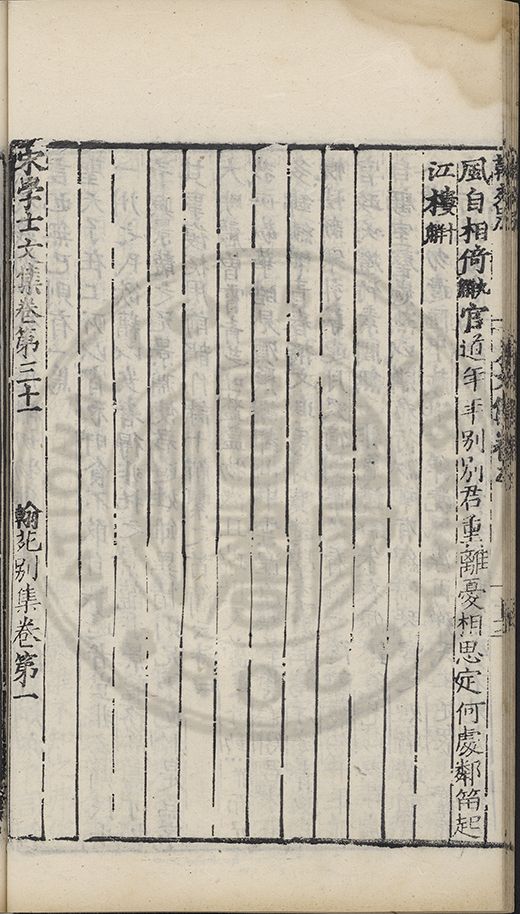 風自相倚官道年年別別君重離憂相思定何處鄰笛起
江樓
宋學士文集卷第三十一 翰苑別集卷第一